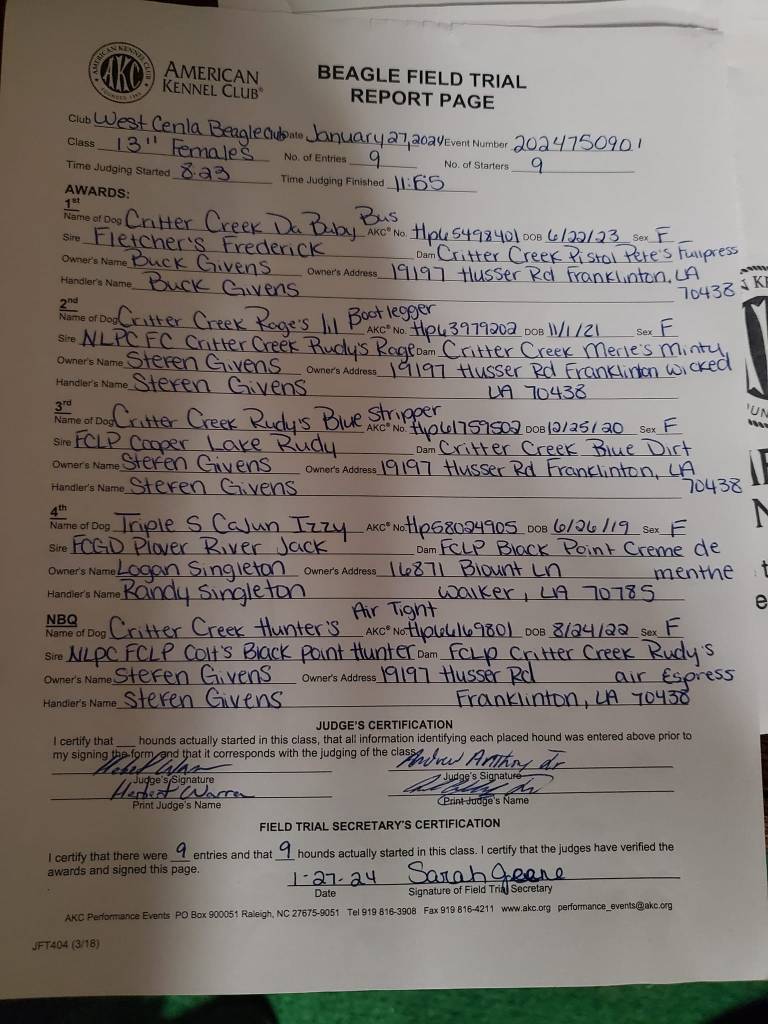 AMERICAN KENNEL CLUB AKC FOUNDED 1884
AMERICAN
KENNEL CLUB®
BEAGLE FIELD TRIAL
REPORT PAGE
Club West Cenla Beagle Club Date January 27, 2024 Event Number 2024750901
Class 13" Females No. of Entries 9 No. of Starters 9
Time Judging Started 8:23 Time Judging Finished 11:55
AWARDS:
1st
Name of Dog Critter Creek Da Baby Bus AKC® No. Hp65498401 DOB 6/22/23 Sex F
Sire Fletcher's Frederick Dam Critter Creek Pistol Pete's Fullpress
Owner's Name Buck Givens Owner's Address 19197 Husser Rd Franklinton, LA
Handler's Name Buck Givens 70438
2nd
Name of Dog Critter Creek Rage's lil Bootlegger AKC® No. Hp63979202 DOB 11/1/21 Sex F
Sire NLPC FC Critter Creek Rudy's Rage Dam Critter Creek Merle's Minty
Owner's Name Steren Givens Owner's Address 19197 Husser Rd Franklinton wicked
Handler's Name Steren Givens LA 70438
3rd
Name of Dog Critter Creek Rudy's Blue Stripper AKC® No. Hp61759502 DOB 12/25/20 Sex F
Sire FCLP Cooper Lake Rudy Dam Critter Creek Blue Dirt
Owner's Name Steren Givens Owner's Address 19197 Husser Rd Franklinton, LA
Handler's Name Steren Givens 70438
4th
Name of Dog Triple S Cajun Izzy AKC® No. Hp58024905 DOB 6/26/19 Sex F
Sire FCGD Plover River Jack Dam FCLP Black Point Creme de
Owner's Name Logan Singleton Owner's Address 16871 Blount Ln menthe
Handler's Name Randy Singleton Walker, LA 70785
NBQ
Name of Dog Critter Creek Hunter's Air Tight AKC® No. Hp66169801 DOB 8/24/22 Sex F
Sire NLPC FCLP Colt's Black Point Hunter Dam FCLp Critter Creek Rudy's
Owner's Name Steren Givens Owner's Address 19197 Husser Rd air Espress
Handler's Name Steren Givens Franklinton, LA 70438
JUDGE'S CERTIFICATION
I certify that ___ hounds actually started in this class, that all information identifying each placed hound was entered above prior to
my signing the form, and that it corresponds with the judging of the class.
Andrew Anthony Jr
Judge's Signature Judge's Signature
Herbert Warren
Print Judge's Name Print Judge's Name
FIELD TRIAL SECRETARY'S CERTIFICATION
I certify that there were 9 entries and that 9 hounds actually started in this class. I certify that the judges have verified the
awards and signed this page.
1-27-24 Sarah Greene
Date Signature of Field Trial Secretary
AKC Performance Events PO Box 900051 Raleigh, NC 27675-9051 Tel 919 816-3908 Fax 919 816-4211 www.akc.org performance_events@akc.org
JFT404 (3/18)